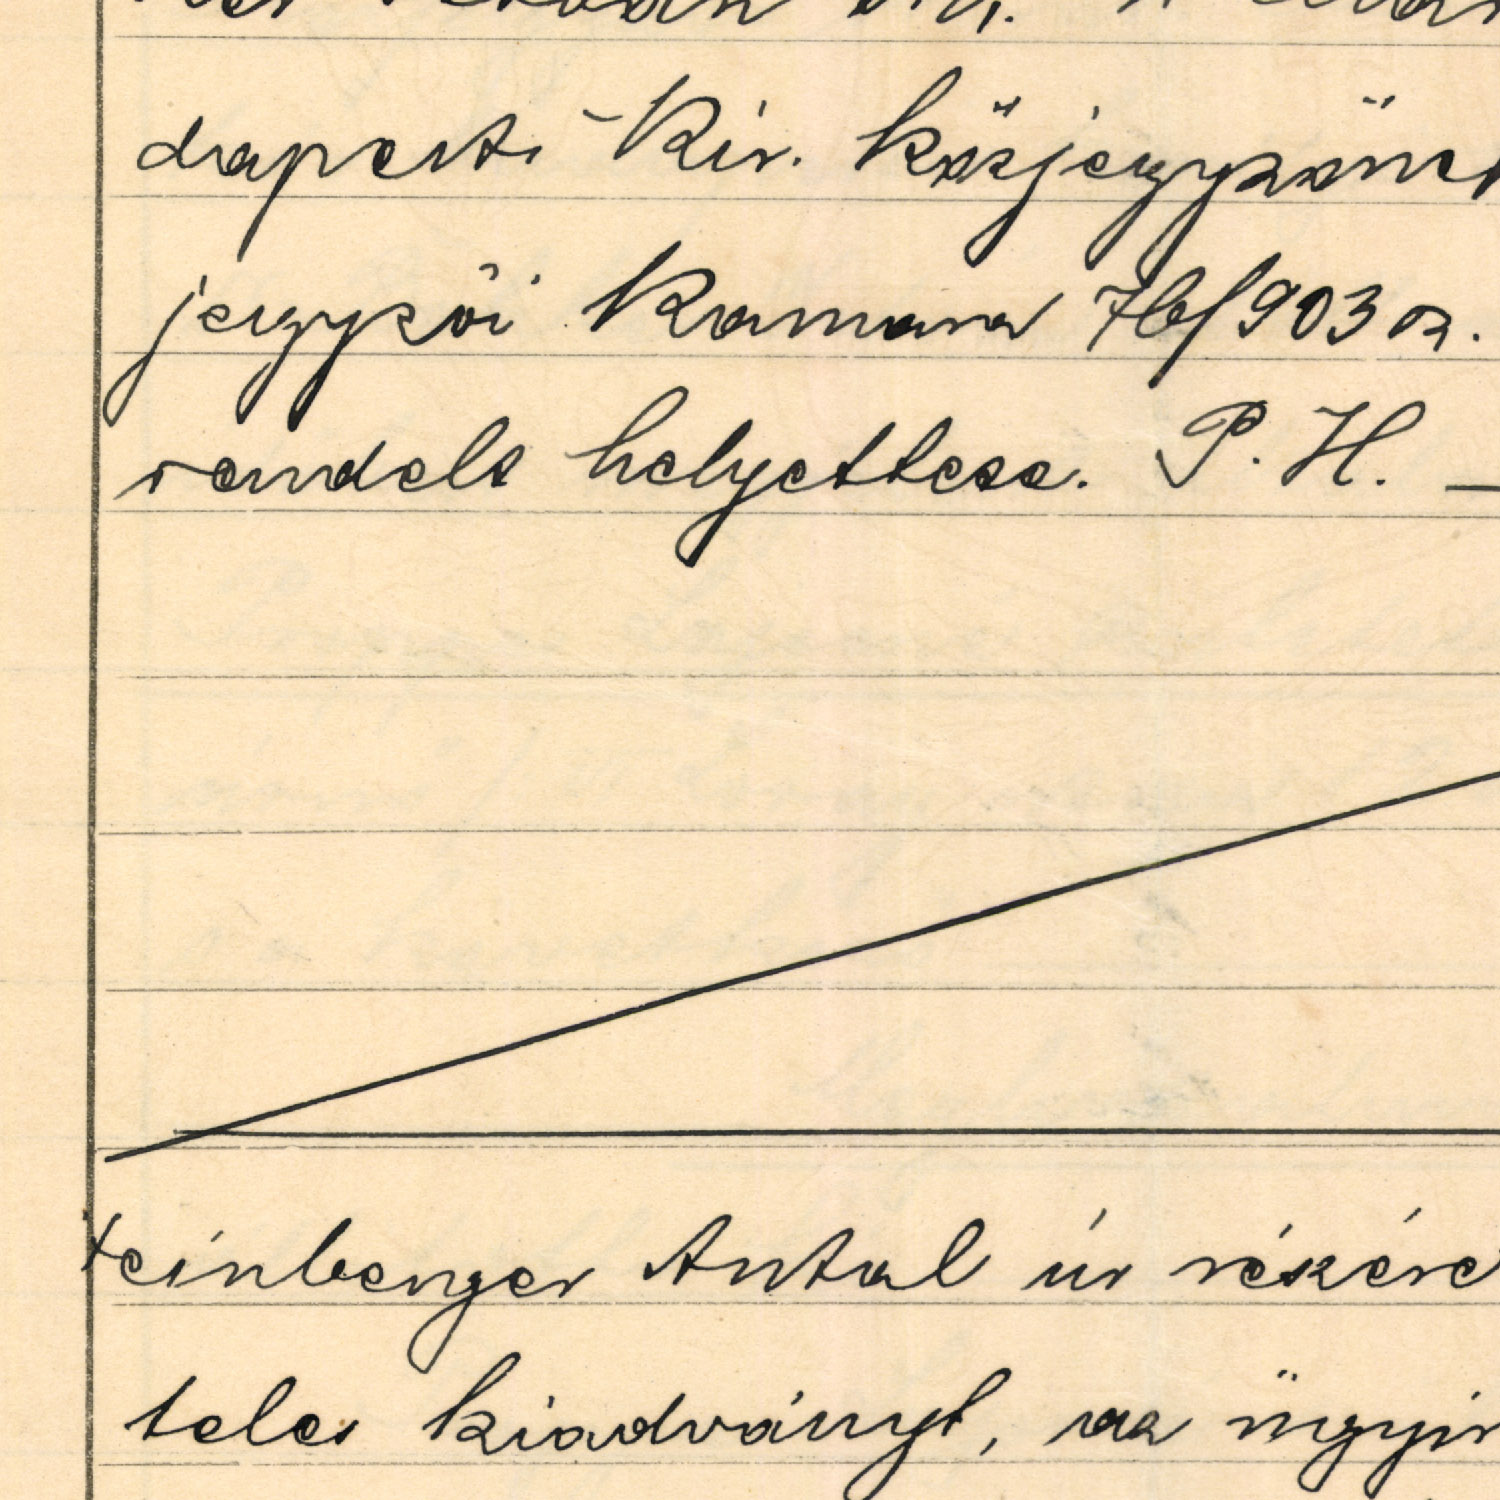 dapesti Kir. közjegyzőne
jegyzői Kamara 76/903 sz.
rendelt helyettese. P. H. —
teinberger Antal úr részére
teles kiadványt, az ügyir